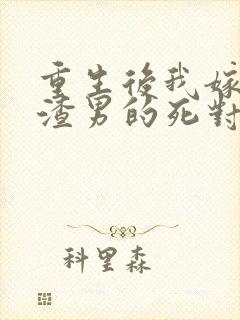 重生後我嫁
渣男的死對
科里森